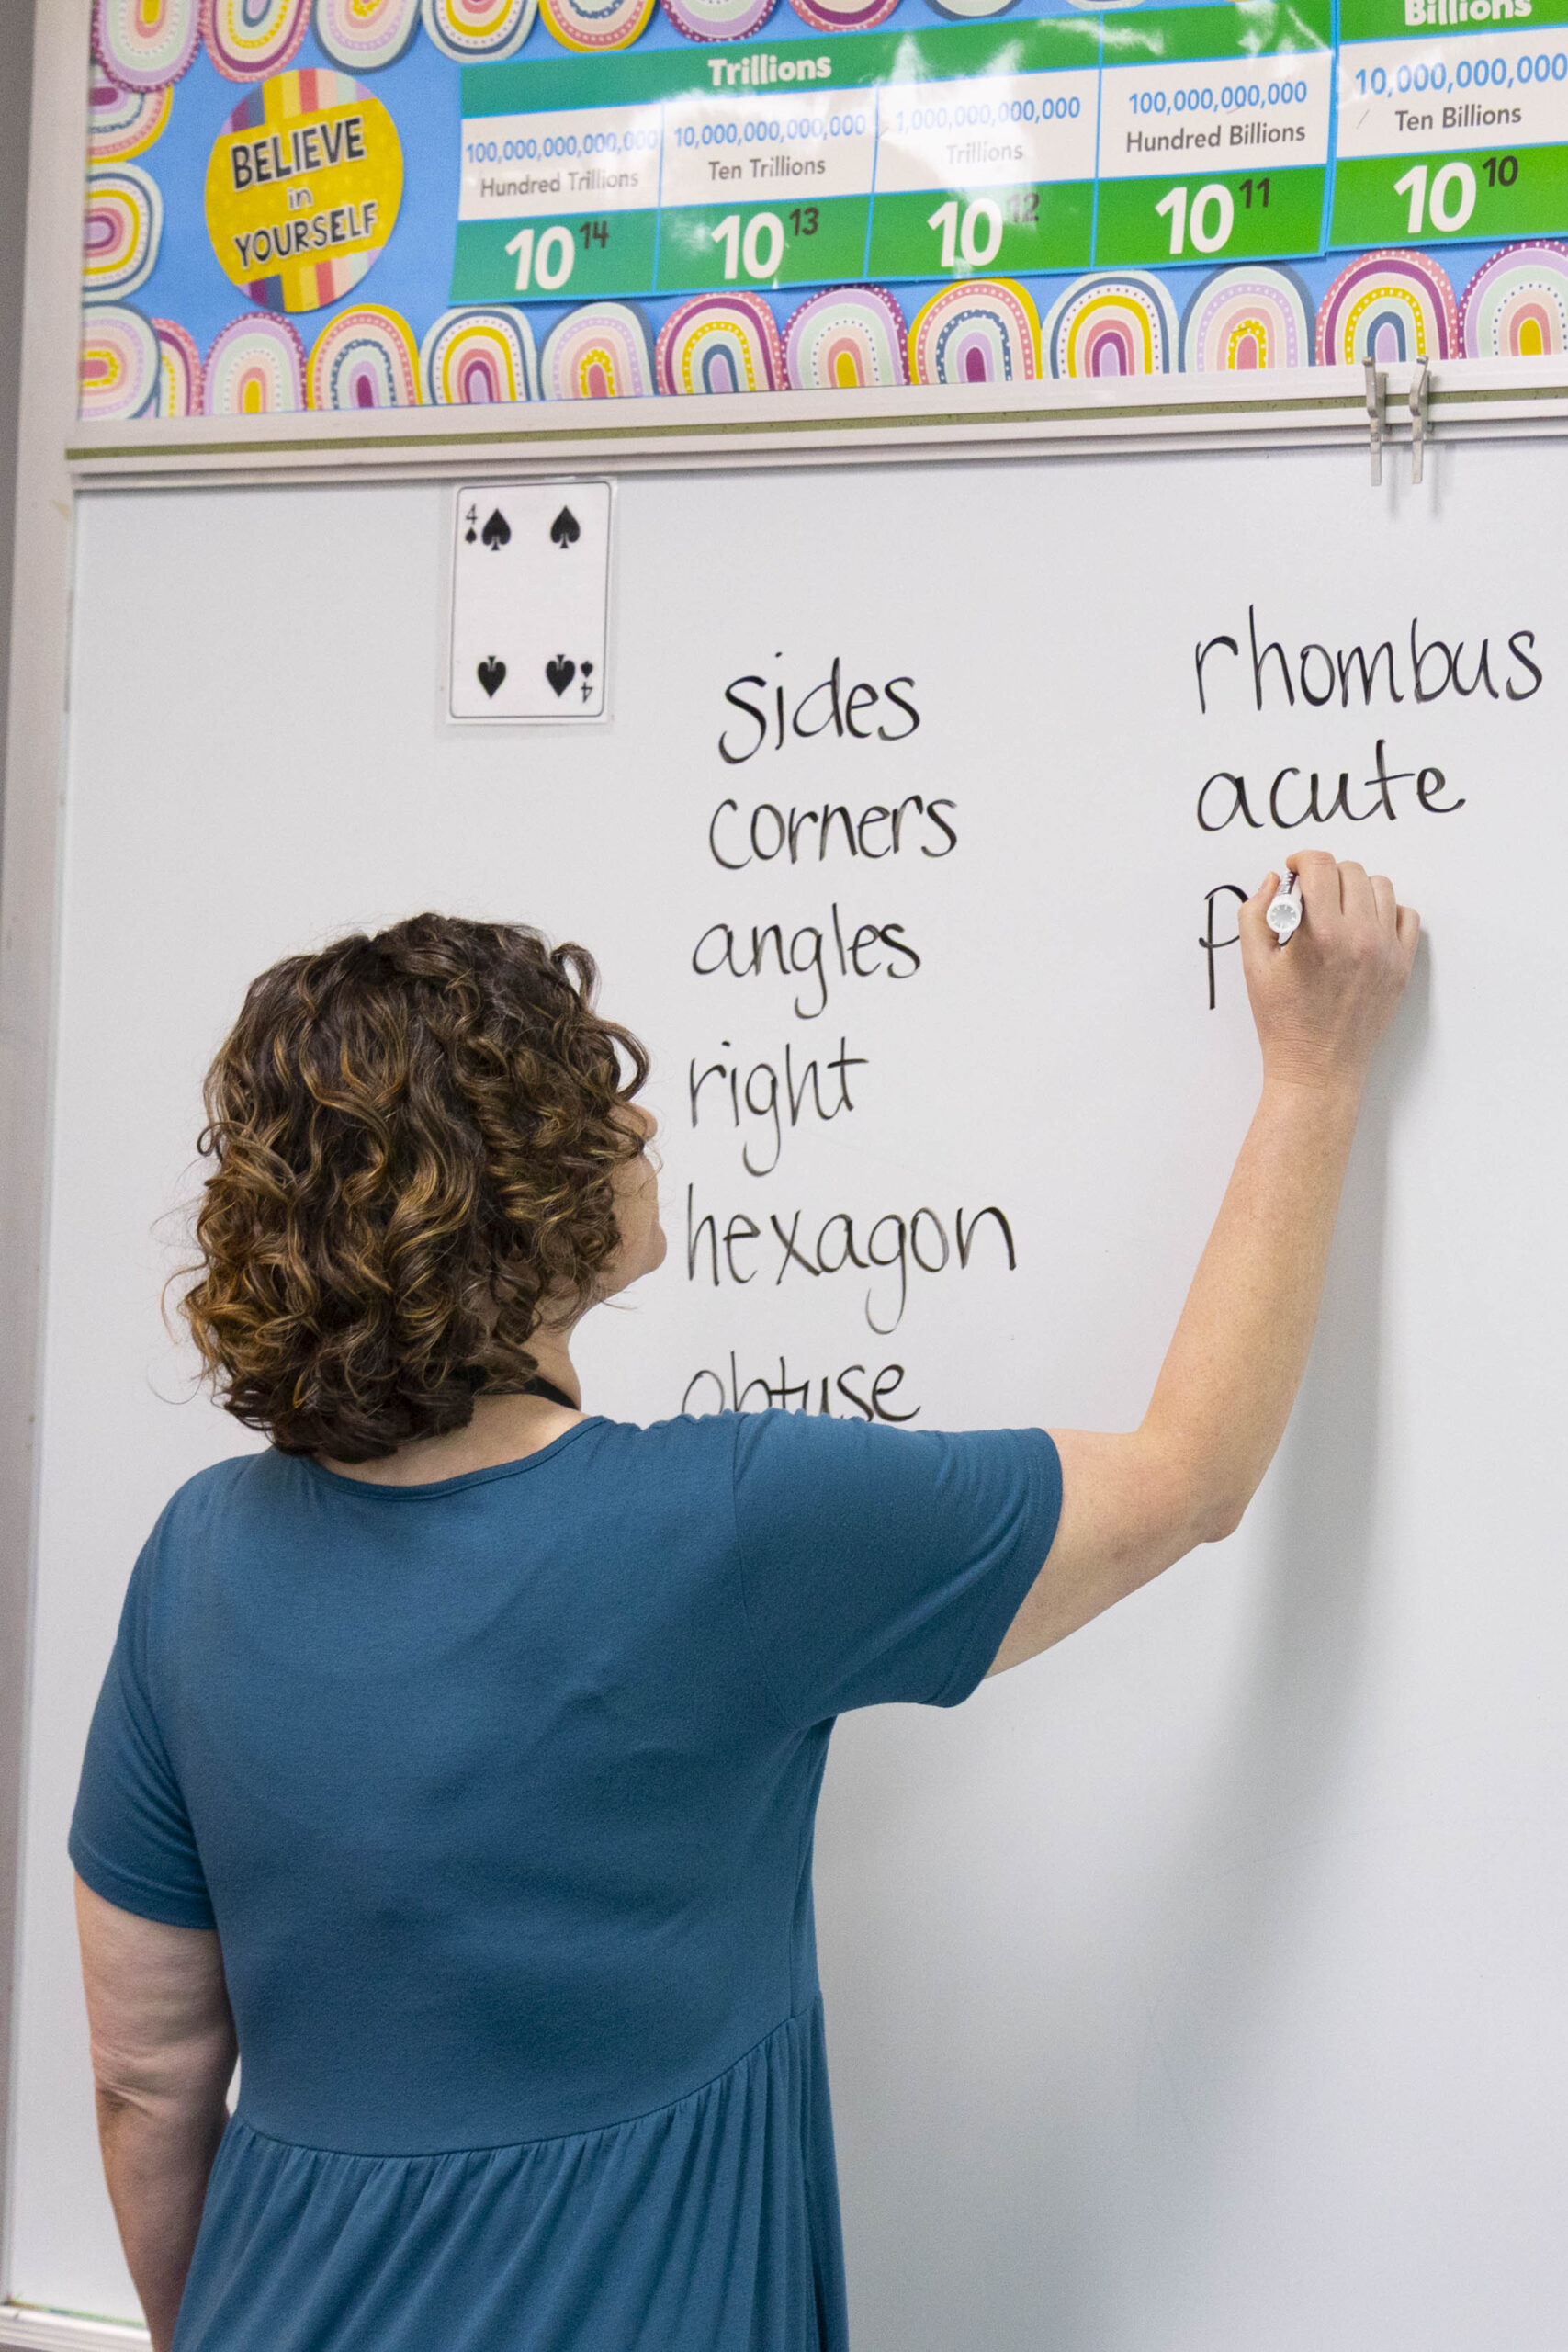 Trillions
Billions
100,000,000,000,000
10,000,000,000,000
1,000,000,000,000
100,000,000,000
10,000,000,000
Hundred Trillions
Ten Trillions
Trillions
Hundred Billions
Ten Billions
10¹⁴
10¹³
10¹²
10¹¹
10¹⁰
BELIEVE
in
YOURSELF
4
4
sides
corners
angles
right
hexagon
obtuse
rhombus
acute
p